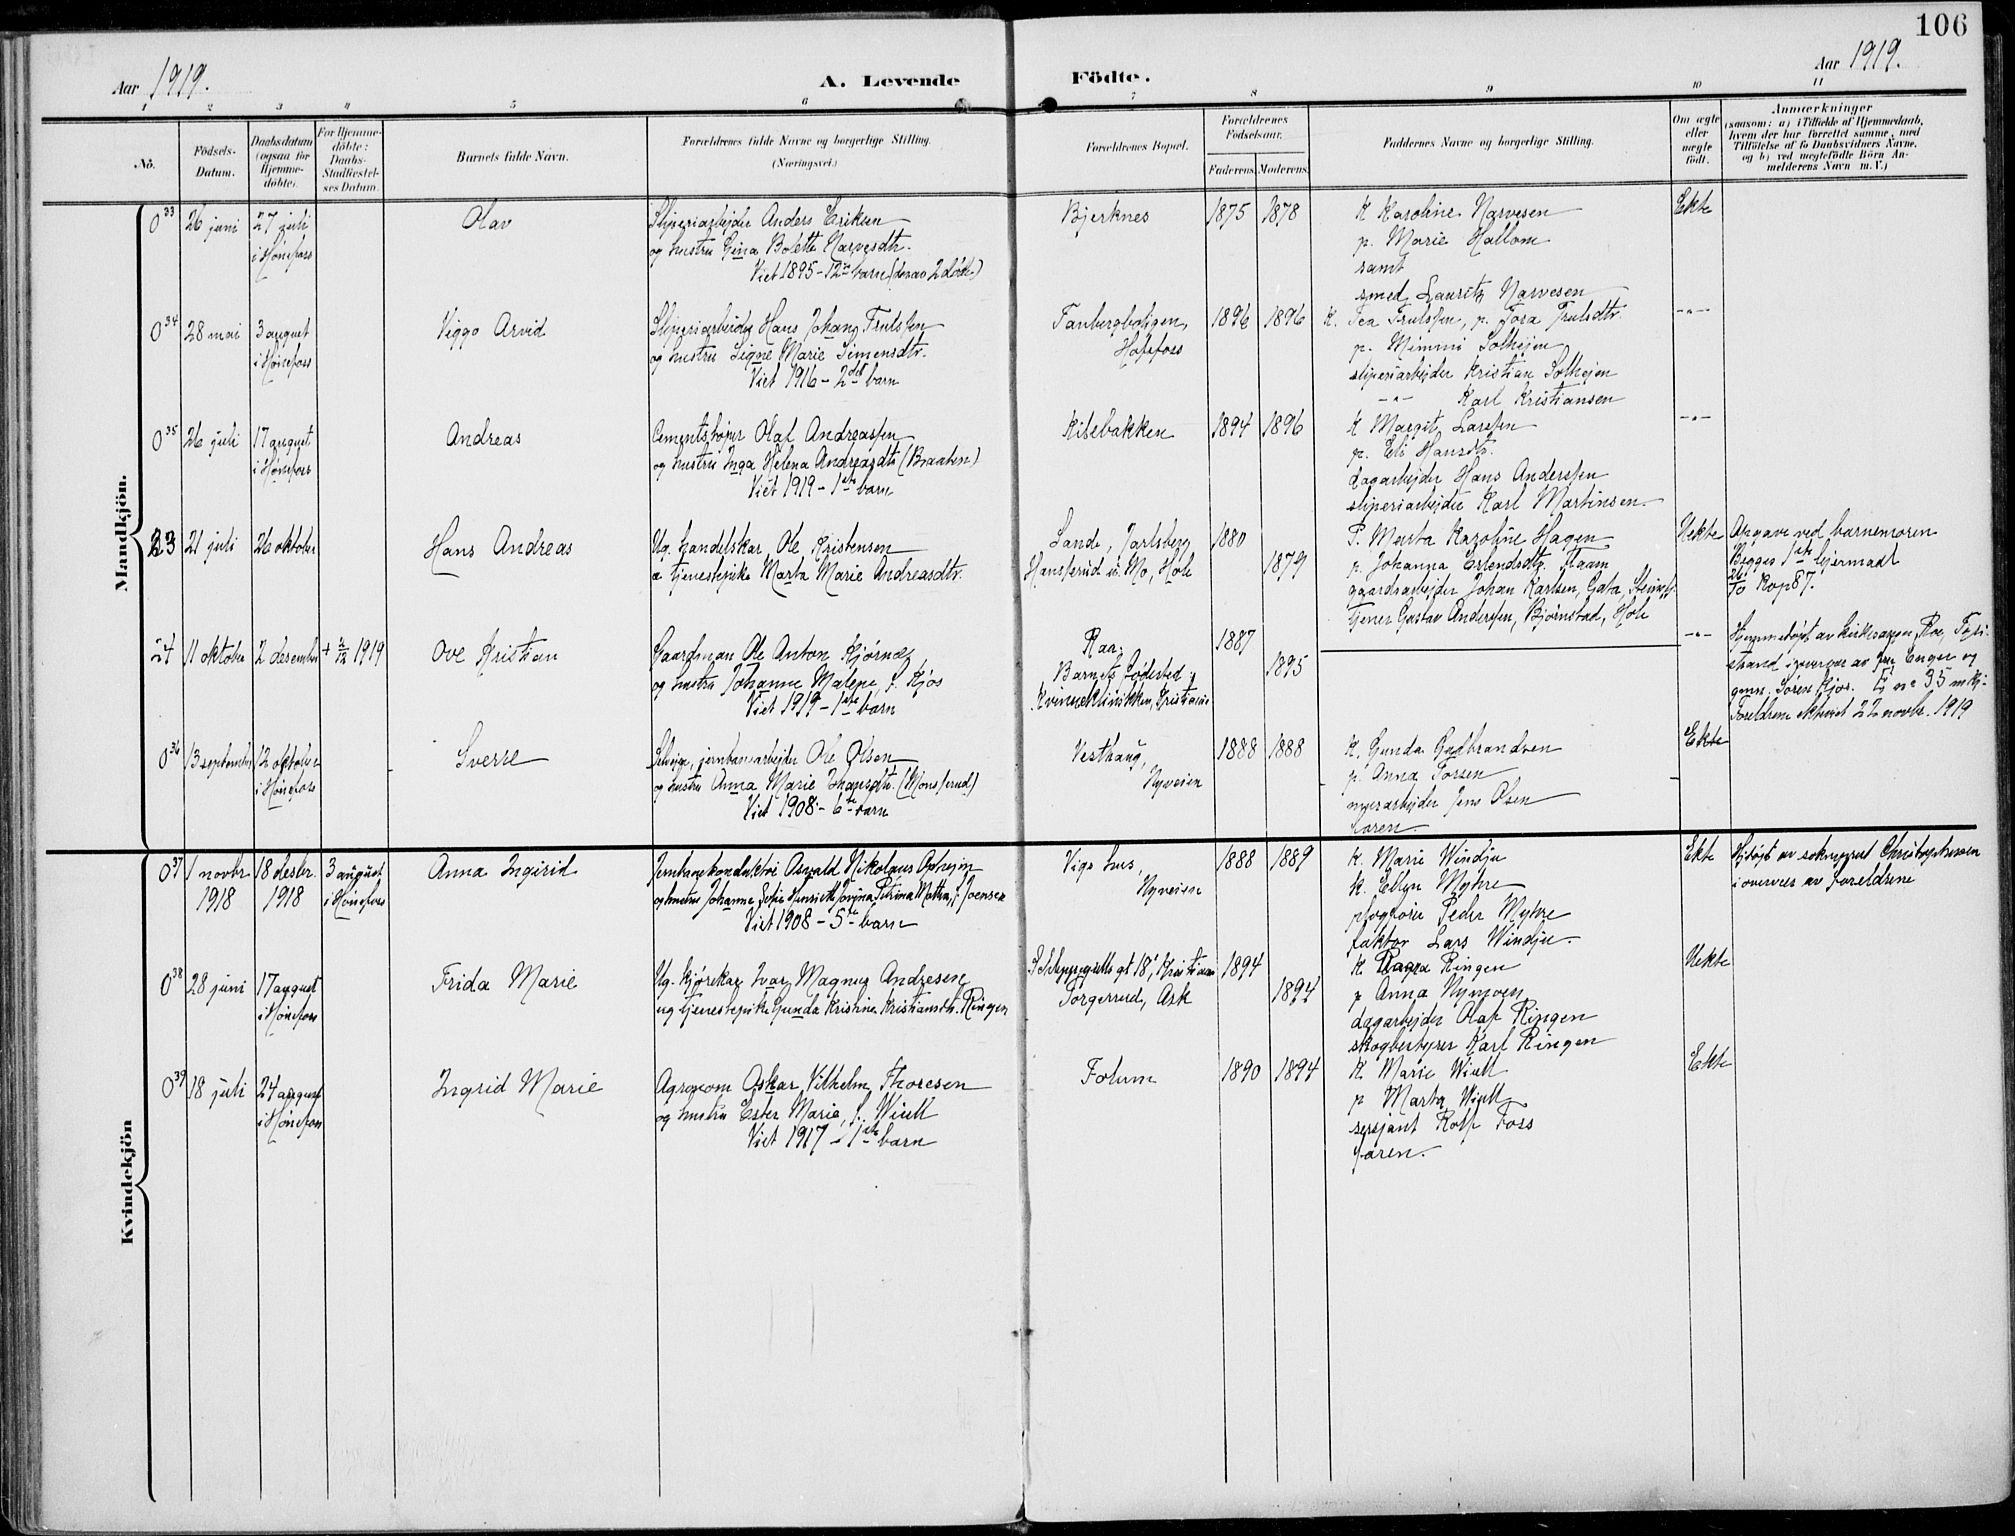 106
Aar 1919.
A. Levende Födte.
Aar 1919.
1 2 3 4 5 6 7 8 9 10 11
No.
Födsels-Datum.
Daabsdatum (ogsaa for Hjemme-döbte).
For Hjemme-döbte: Daabs-Stadfæstel-ses Datum.
Barnets fulde Navn.
Forældrenes fulde Navne og borgerlige Stilling.
(Næringsvei.)
Forældrenes Bopæl.
Forældrenes Födselsaar.
Faderens. Moderens.
Faddernes Navne og borgerlige Stilling.
Om ægte eller uægte födt.
Anmærkninger
(saasom: a) i Tilfælde af Hjemmedaab,
hvem der har forrettet samme, med
Tilföielse af to Daabsvidners Navne,
og b) ved uægtefödte Börn An-
melderens Navn m. V.)
Mandkjön.
0 33 26 juni 27 juli i Hönefoss Olav
Sliperiarbejder Anders Eriksen
og hustru Gina Bolette Narvesdtr.
Viet 1895 - 12te barn (derav 2 döde)
Bjerknes 1875 1878
K Karoline Narvesen
p. Marie Hallom
samt
smed Lauritz Narvesen
Ekte
0 34 28 mai 3 august i Hönefoss Viggo Arvid
Sliperiarbeider Hans Johan Trulssen
og hustru Signe Marie Simensdtr.
Viet 1916 - 2det barn
Tanbergboligen, Hofsfoss 1896 1896
K. Tea Trulssen, p. Tora Trulsdtr.
p. Mimmi Solhejm
sliperiarbejder Kristian Solhejm
-"- Karl Kristiansen
-"-
0 35 26 juli 17 august i Hönefoss Andreas
Cementstøper Olaf Andreassen
og hustru Inga Helena Andreasdtr (Braaten)
Viet 1919 - 1ste barn
Kilebakken 1894 1896
K Margit Larssen
p. Eli Hansdtr.
dagarbejder Hans Anderssen
sliperiarbejder Karl Martinsen
-"-
23 21 juli 26 oktober Hans Andreas
Ug. handelskar Ole Kristensen
a tjenestepike Marta Marie Andreasdtr.
Sande, Jarlsberg 1880
Hansserud u. Mo, Hole 1879
P. Marta Karoline Hagen
p. Johanna Erlendsdtr. Flaam
gaardsarbejder Johan Karlsen, Gata,
Tjener Gustav Andersen, Bjørnstad, Hole
Uekte
Opgave ved barnemoren
Begges 1ste lejermaal
26/10 Kop 87.
24 11 oktober 2 desember + 4/12 1919 Ove Kristian
Gaardman Ole Anton Kjørnæs
og hustru Johanne Malene, f. Kjos
Viet 1919 - 1ste barn
Raa. 1887
Barnets fødested: 1895
Kvinneklinikken, Kristiania
-"-
Hjemmedøpt av kirkesanger Roe,
strand i overvær av fru Enger og
Søren Kjos.
Foreldrene ekteviet 22 novbr. 1919
0 36 13 september 12 oktober i Hönefoss Sverre
jernbanearbejder Ole Olsen
og hustru Anna Marie Johansdtr. (Monserud)
Viet 1908 - 6te barn
Vesthaug, Nyveien 1888 1888
K. Gunda Gudbrandsen
p. Anna Fossen
myrarbejder Jens Olsen
Faren.
Ekte
Kvindekjön
0 37 1 novbr 1918 18 desbr. 1918 3 august i Hönefoss Anna Ingirid
Jernbanekonduktør Osvald Nikolaus Opheim
og hustru Johanne Sofie Henriette Jovina Petrina Mathea, f. Joensen
Viet 1908 - 5te barn
Vigs hus, Nyveien 1888 1889
K. Marie Windju
K. Ellen Myhre
plogfører Peder Myhre
faktor Lars Windju.
Ekte
Hjdøpt av sokneprest Christophersen
i overvær av foreldrene
0 38 28 juni 17 august i Hönefoss Frida Marie
Ug. kjørekar Ivar Magnus Andresen
og tjenestepike Gunda Kristine Kristiansdtr. Ringen
Schleppegrells gt 18, Kristiania 1894
Torgerrud, Ask 1894
K Ragna Ringen
p Anna Nymoen
dagarbejder Olaf Ringen
skogbestyrer Karl Ringen
Uekte
0 39 18 juli 24 august i Hönefoss Ingrid Marie
Agronom Oskar Vilhelm Thoresen
og hustru Ester Marie, f. Wiull
Viet 1917 - 1ste barn
Folum 1890 1894
K Marie Wiull
p Marta Wiull
sersjant Rolf Foss
Faren.
Ekte